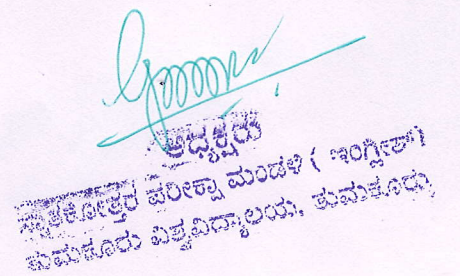 ಅಧ್ಯಕ್ಷರು
ಸ್ನಾತಕೋತ್ತರ ಪರೀಕ್ಷಾ ಮಂಡಳಿ ( ಇಂಗ್ಲೀಶ್)
ತುಮಕೂರು ವಿಶ್ವವಿದ್ಯಾಲಯ, ತುಮಕೂರು.